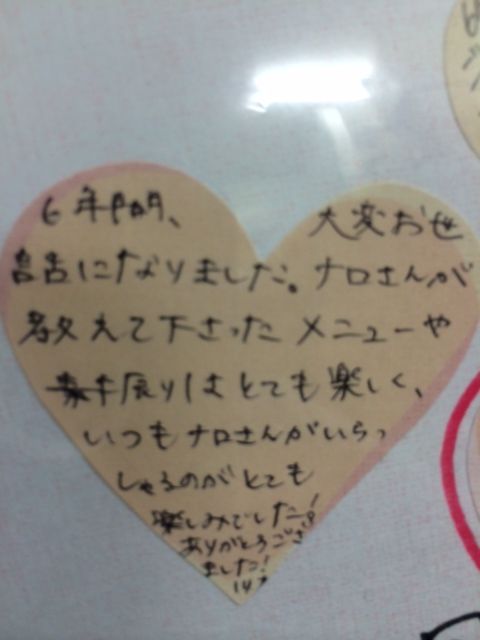 6年間、 大変お世
話になりました。ナロさんが
教えて下さったメニューや
振りはとても楽しく、
いつもナロさんがいらっ
しゃるのがとても
楽しみでした!
ありがとうござい
ました!